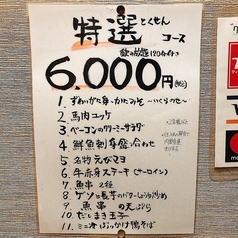 特選 とくせん
コース
飲み放題120分付き
6,000円(税込)
1. ずわいがに身・かにみそ 〜いくらのせ〜
2. 馬肉ユッケ
3. ベーコンのクリーミーサラダ
4. 鮮魚刺身盛合わせ
5. 名物 えびマヨ
6. 牛赤身ステーキ(サーロイン)
7. 魚串 2種
8. ゲソと長芋のバターしょうゆ炒め
9. 魚串の天ぷら
10. だしまき玉子
11. ミニ冷ぶっかけ鴨そば